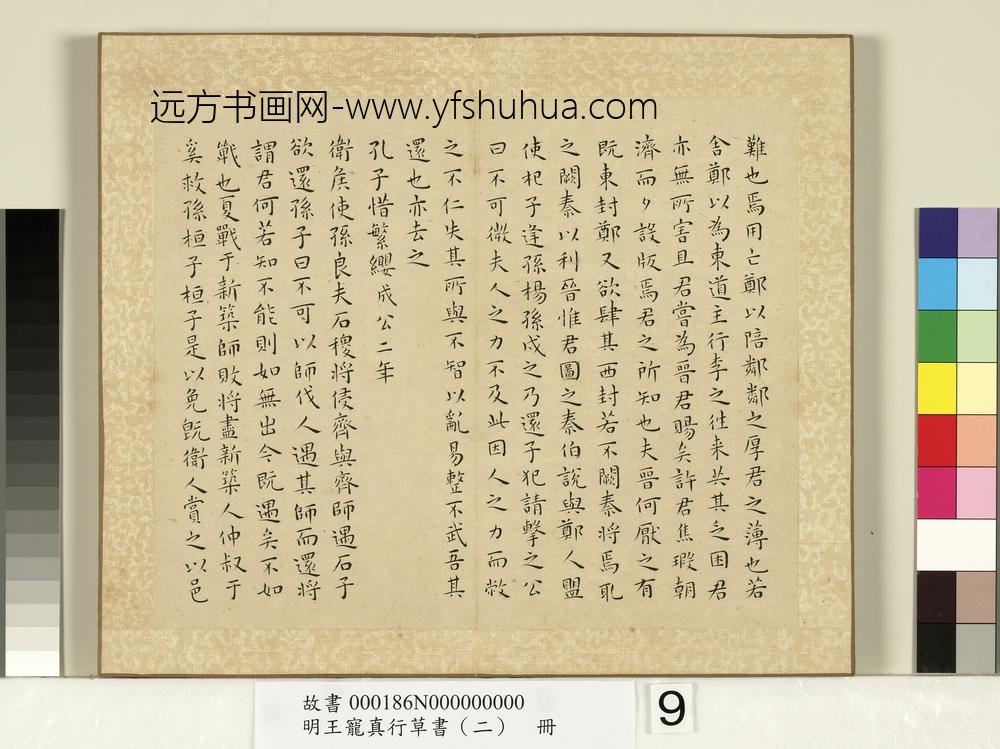 远方书画网-www.yfshuhua.com
難也焉用亡鄭以陪鄰鄰之厚君之薄也若
舍鄭以為東道主行李之往来共其乏困君
亦無所害且君嘗為晉君賜矣許君焦瑕朝
濟而夕設版焉君之所知也夫晉何厭之有
既東封鄭又欲肆其西封若不闕秦將焉取
之闕秦以利晉惟君圖之秦伯說與鄭人盟
使杞子逢孫楊孫戍之乃還子犯請擊之公
曰不可微夫人之力不及此因人之力而敝
之不仁失其所與不智以亂易整不武吾其
還也亦去之
孔子惜繁纓成公二年
衛侯使孫良夫石稷將侵齊與齊師遇石子
欲還孫子曰不可以師伐人遇其師而還將
謂君何若知不能則如無出今既遇矣不如
戰也夏戰于新築師敗將盡新築人仲叔于
奚救孫桓子桓子是以免旣衛人賞之以邑
故書 000186N000000000
明王寵真行草書（二） 冊
9